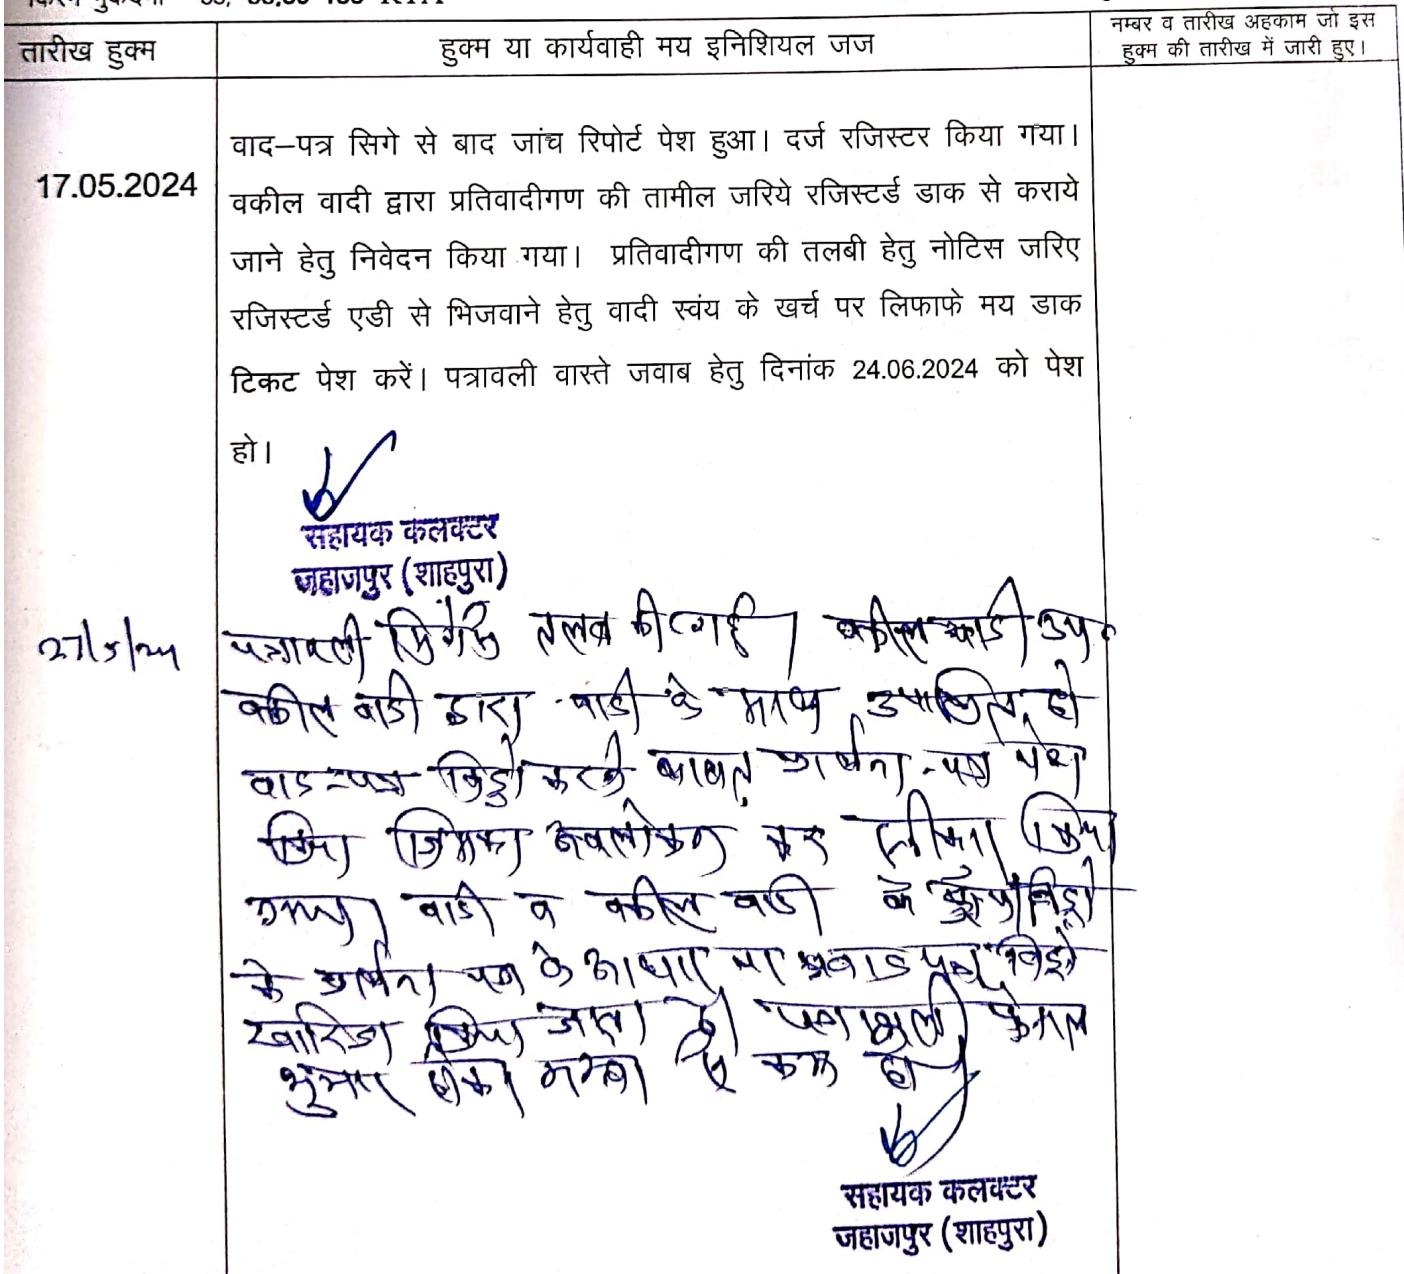 तारीख हुक्म
हुक्म या कार्यवाही मय इनिशियल जज
नम्बर व तारीख अहकाम जो इस
हुक्म की तारीख में जारी हुए।
17.05.2024
वाद–पत्र सिगे से बाद जांच रिपोर्ट पेश हुआ। दर्ज रजिस्टर किया गया।
वकील वादी द्वारा प्रतिवादीगण की तामील जरिये रजिस्टर्ड डाक से कराये
जाने हेतु निवेदन किया गया। प्रतिवादीगण की तलबी हेतु नोटिस जरिए
रजिस्टर्ड एडी से भिजवाने हेतु वादी स्वंय के खर्च पर लिफाफे मय डाक
टिकट पेश करें। पत्रावली वास्ते जवाब हेतु दिनांक 24.06.2024 को पेश
हो।
सहायक कलक्टर
जहाजपुर (शाहपुरा)
27/5/24
पत्रावली तलब की गई। वकील वादी उप०
वकील वादी द्वारा वादी के साथ उपस्थित हो
वाद–पत्र विड्रो करने बाबत् प्रार्थना–पत्र पेश
किया जिसका अवलोकन कर किया
गया। वादी व वकील वादी के विड्रो
के प्रार्थना पत्र के आधार पर विड्रो
खारिज किया जाता है। पत्रावली फैसल
शुमार होकर नम्बर से कम हो।
सहायक कलक्टर
जहाजपुर (शाहपुरा)